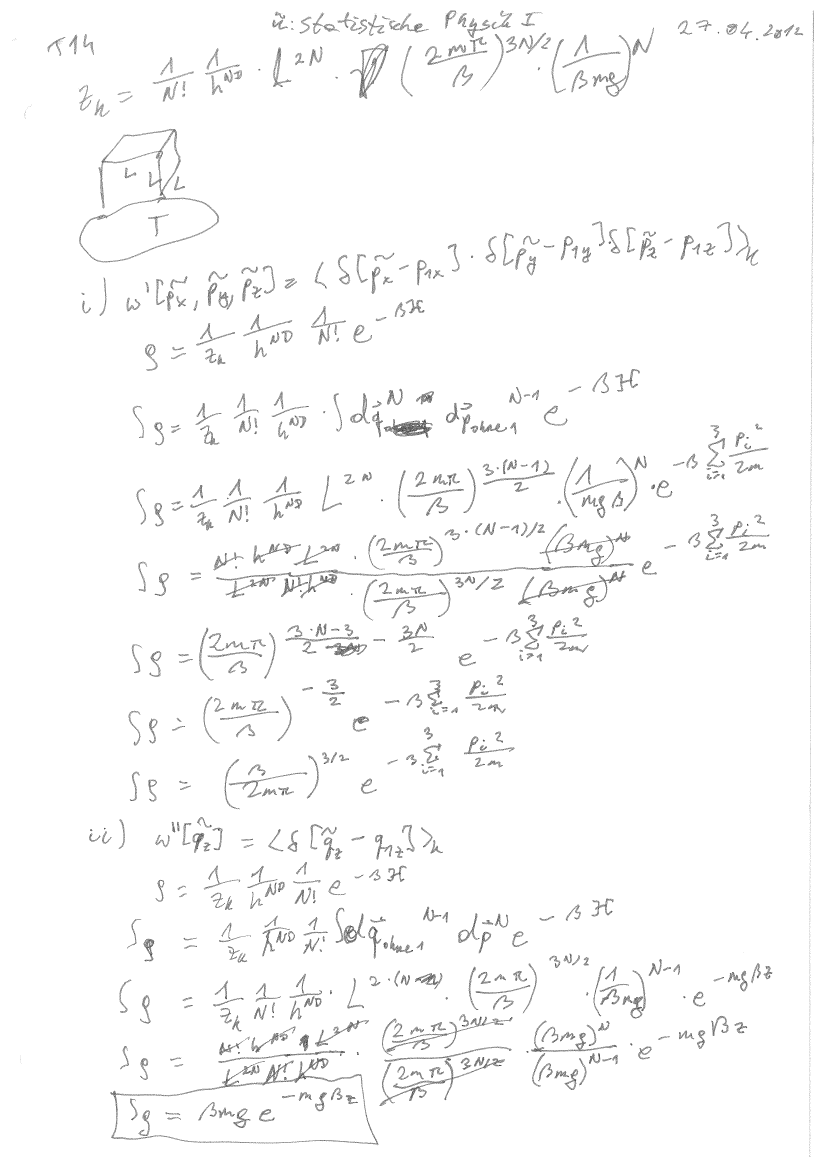 Ü: Statistische Physik I 27.04.2012
T14
Z_k = 1/N! 1/h^{ND} · L^{2N} · (2mπ/β)^{3N/2} · (1/βmg)^N
L L L
T
i) w'[p̃_x, p̃_y, p̃_z] = ⟨δ[p̃_x - p_{1x}] · δ[p̃_y - p_{1y}] · δ[p̃_z - p_{1z}]⟩_k
ρ = 1/Z_k 1/h^{ND} 1/N! e^{-βℋ}
∫ρ = 1/Z_k 1/N! 1/h^{ND} · ∫dq⃗^N dp⃗_{ohne 1}^{N-1} e^{-βℋ}
∫ρ = 1/Z_k 1/N! 1/h^{ND} L^{2N} · (2mπ/β)^{3·(N-1)/2} · (1/mgβ)^N · e^{-β∑_{i=1}^3 p_i²/2m}
∫ρ = N! h^{ND} L^{2N} · (2mπ/β)^{3·(N-1)/2} (βmg)^N / L^{2N} N! h^{ND} · (2mπ/β)^{3N/2} (βmg)^N e^{-β∑_{i=1}^3 p_i²/2m}
∫ρ = (2mπ/β)^{(3·N-3)/2 - 3N/2} e^{-β∑_{i=1}^3 p_i²/2m}
∫ρ = (2mπ/β)^{-3/2} e^{-β∑_{i=1}^3 p_i²/2m}
∫ρ = (β/2mπ)^{3/2} e^{-β∑_{i=1}^3 p_i²/2m}
ii) w''[q̃_z] = ⟨δ[q̃_z - q_{1z}]⟩_k
ρ = 1/Z_k 1/h^{ND} 1/N! e^{-βℋ}
∫ρ = 1/Z_k 1/h^{ND} 1/N! ∫dq⃗_{ohne 1}^{N-1} dp⃗^N e^{-βℋ}
∫ρ = 1/Z_k 1/N! 1/h^{ND} · L^{2·N} · (2mπ/β)^{3N/2} · (1/βmg)^{N-1} · e^{-mgβz}
∫ρ = N! h^{ND} L^{2N} / L^{2N} N! h^{ND} · (2mπ/β)^{3N/2} / (2mπ/β)^{3N/2} · (βmg)^N / (βmg)^{N-1} · e^{-mgβz}
∫ρ = βmg e^{-mgβz}